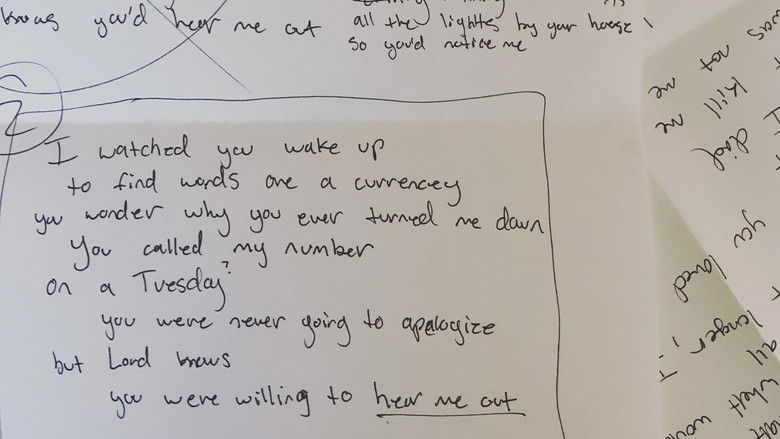 knows you'd hear me out
all the lights by your house
so you'd notice me
2
I watched you wake up
to find words are a currencey
you wonder why you ever turned me down
You called my number
on a Tuesday?
you were never going to apologize
but Lord knows
you were willing to hear me out
was not
kill me
I died
you
loved
longer, I
all
what would